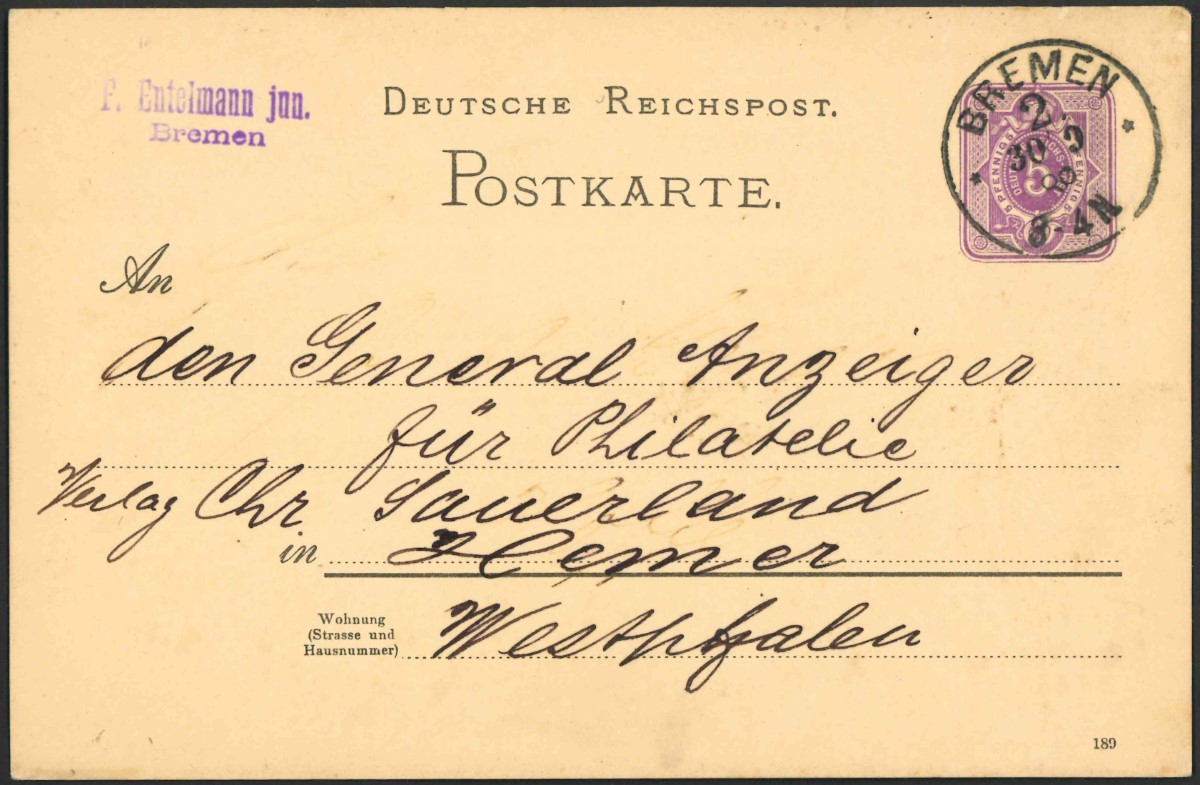 F. Entelmann jun.
Bremen
DEUTSCHE REICHSPOST.
POSTKARTE.
BREMEN
2
30 9
3-4N
5 PFENNIG 5
PFENNIG 5
DEUTSCHE REICHS-POST
5
An
den General Anzeiger
für Philatelie
Verlag Chr Sauerland
in Hemer
Wohnung
(Strasse und
Hausnummer)
Westphalen
189